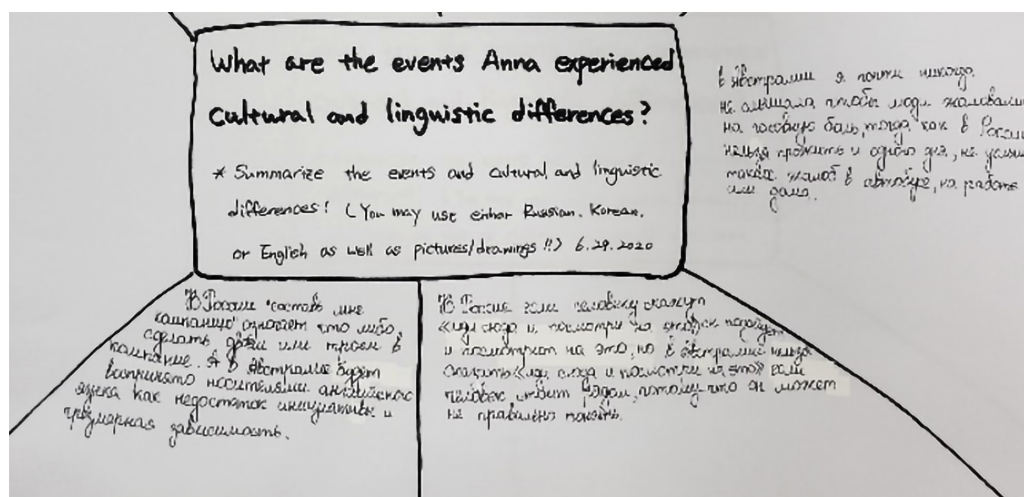 What are the events Anna experienced
cultural and linguistic differences?
* Summarize the events and cultural and linguistic
differences! (You may use either Russian, Korean,
or English as well as pictures/drawings!!) 6.29.2020
в Австралии я почти никогда
не слышала чтобы люди жаловались
на головную боль, тогда как в России
нельзя прожить и одного дня, не
таких жалоб в автобусе, на работе
или дома.
В России "составь мне
компанию" означает что либо
сделать двоём или троём в
компание. А в Австралии будет
воспринято носителями английского
языка как недостаток инициативы и
чрезмерная зависимость.
В России если человеку скажут
"иди сюда и посмотри на это, он подойдёт
и посмотрит на это, но в Австралии нельзя
сказать "иди сюда и посмотри на это" если
человек стоит рядом, потому что он может
не правильно понять.